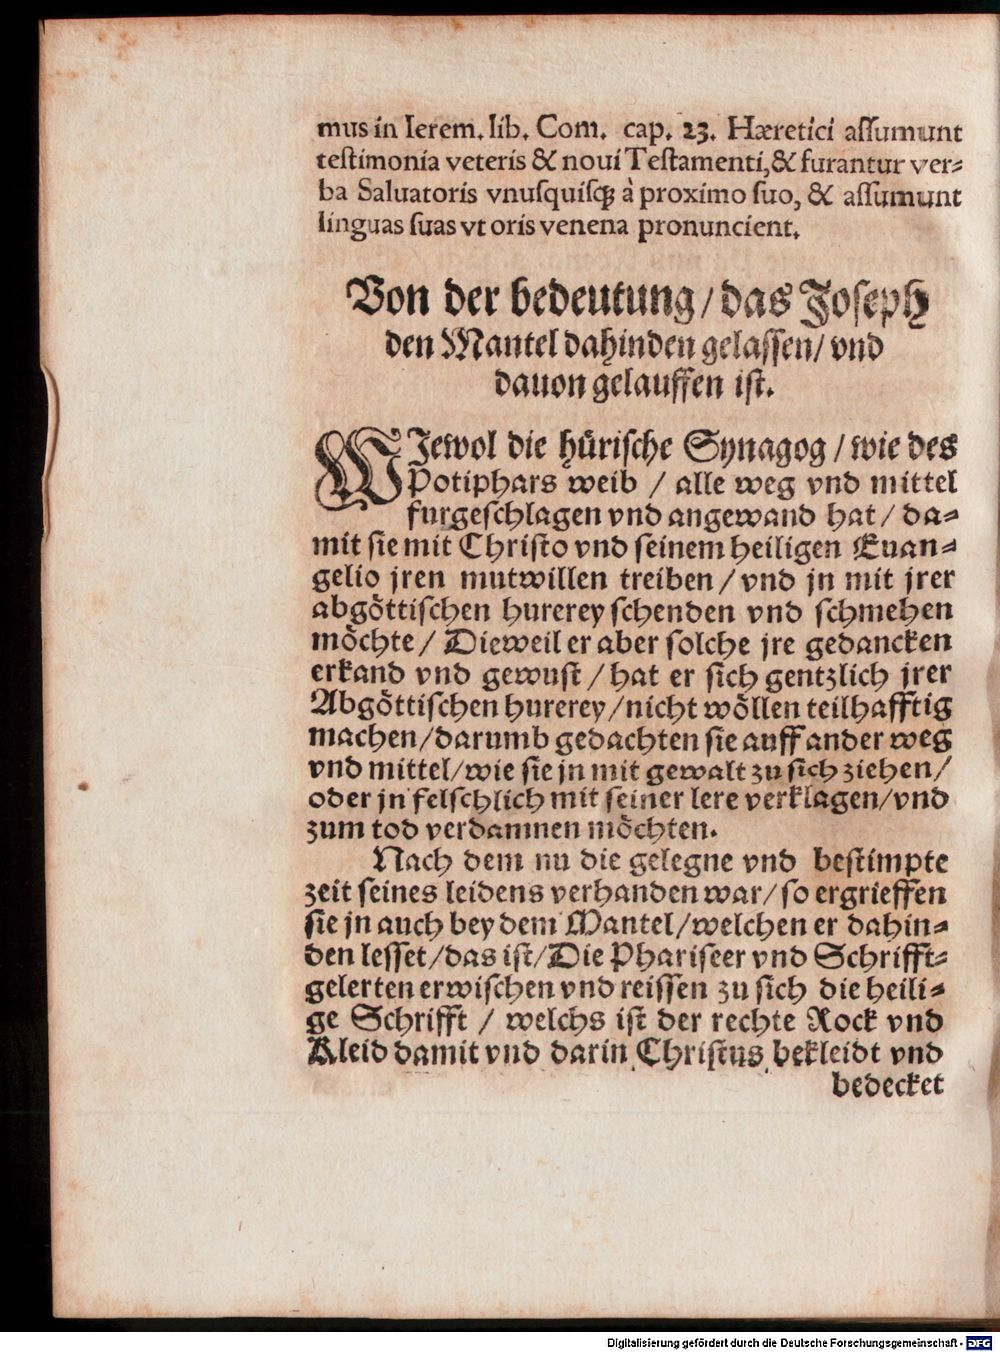 mus in Ierem. lib. Com. cap. 23. Hæretici aſſumunt
teſtimonia veteris & noui Teſtamenti, & furantur ver⸗
ba Saluatoris vnuſquiſqꝫ à proximo ſuo, & aſſumunt
linguas ſuas vt oris venena pronuncient.
Von der bedeutung / das Joſeph
den Mantel dahinden gelaſſen / vnd
dauon gelauffen iſt.
WJewol die hüriſche Synagog / wie des
Potiphars weib / alle weg vnd mittel
furgeſchlagen vnd angewand hat / da⸗
mit ſie mit Chriſto vnd ſeinem heiligen Euan⸗
gelio jren mutwillen treiben / vnd jn mit jrer
abgöttiſchen hurerey ſchenden vnd ſchmehen
möchte / Dieweil er aber ſolche jre gedancken
erkand vnd gewuſt / hat er ſich gentzlich jrer
Abgöttiſchen hurerey / nicht wöllen teilhafftig
machen / darumb gedachten ſie auff ander weg
vnd mittel / wie ſie jn mit gewalt zu ſich ziehen /
oder jn felſchlich mit ſeiner lere verklagen / vnd
zum tod verdamnen möchten.
Nach dem nu die gelegne vnd beſtimpte
zeit ſeines leidens verhanden war / ſo ergrieffen
ſie jn auch bey dem Mantel / welchen er dahin⸗
den leſſet / das iſt / Die Phariſeer vnd Schrifft⸗
gelerten erwiſchen vnd reiſſen zu ſich die heili⸗
ge Schrifft / welchs iſt der rechte Rock vnd
Kleid damit vnd darin Chriſtus bekleidt vnd
bedecket
Digitalisierung gefördert durch die Deutsche Forschungsgemeinschaft - DFG